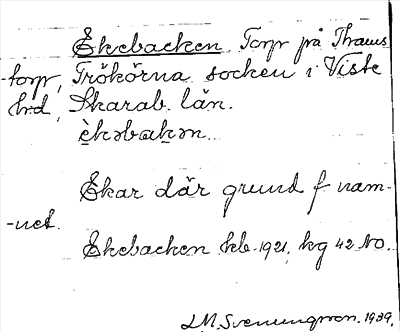 Ekebacken Torp på Thams
-torp, Trökörna socken i Viste
hrd, Skarab. län.
èkəbakən
Ekar där grund f nam-
-net.
Ekebacken kb. 1921, kg 42 No.
J.M. Svenungsson. 1939.